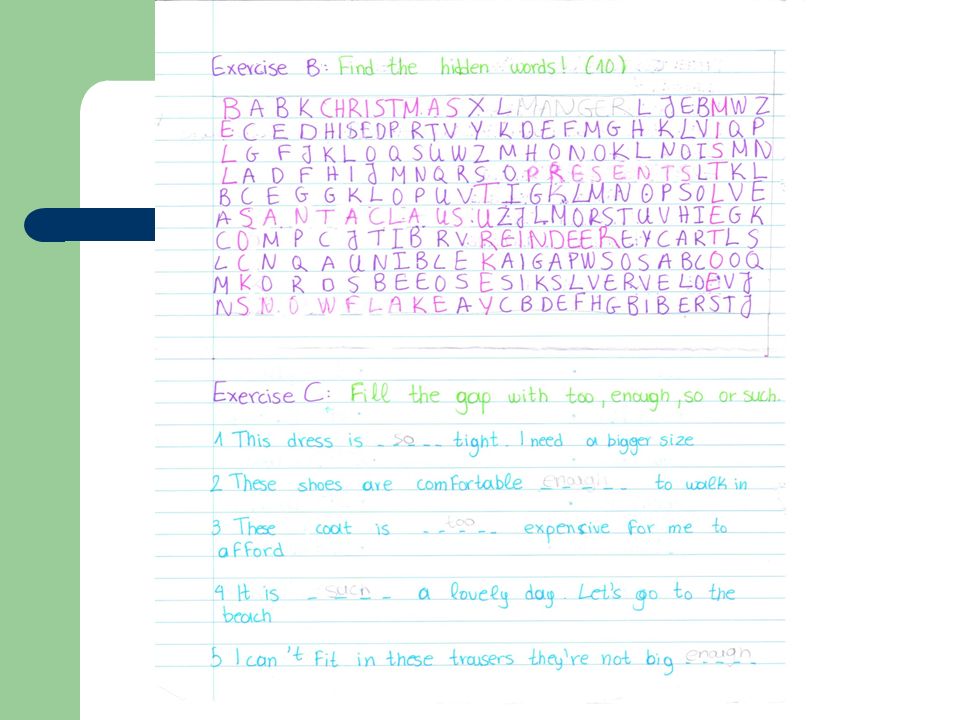 Exercise B: Find the hidden words! (10)
B A B K C H R I S T M A S X L M A N G E R L J E B M W Z
E C E D H I S E D P R T V Y K D E F M G H K L V I Q P
L G F J K L O Q S U W Z M H O N O K L N O I S M N
L A D F H I J M N Q R S O P R E S E N T S L T K L
B C E G G K L O P U V T I G K L M N O P S O L V E
A S A N T A C L A U S U Z J L M O R S T U V H I E G K
C O M P C J T I B R V R E I N D E E R E Y C A R T L S
L C N Q A U N I B L E K A I G A P W S O S A B C O O Q
M K O R D S B E E O S E S I K S L V E R V E L O E V J
N S N O W F L A K E A Y C B D E F H G B I B E R S T J
Exercise C: Fill the gap with too, enough, so or such.
1 This dress is so tight. I need a bigger size
2 These shoes are comfortable enough to walk in
3 These coat is too expensive for me to
afford
4 It is such a lovely day. Let's go to the
beach
5 I can't fit in these trousers they're not big enough